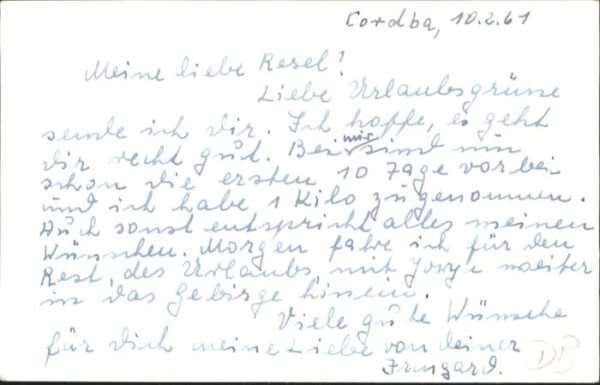 Cordba, 10.2.61
Meine liebe Resel!
Liebe Urlaubsgrüsse
sende ich dir. Ich hoffe, es geht
dir recht gut. Bei mir sind nun
schon die ersten 10 Tage vorbei
und ich habe 1 Kilo zugenommen.
Auch sonst entspricht alles meinen
Wünschen. Morgen fahre ich für den
Rest des Urlaubs mit weiter
in das Gebirge hinein.
Viele gute Wünsche
für dich meine Liebe von deiner
Irmgard.
DB